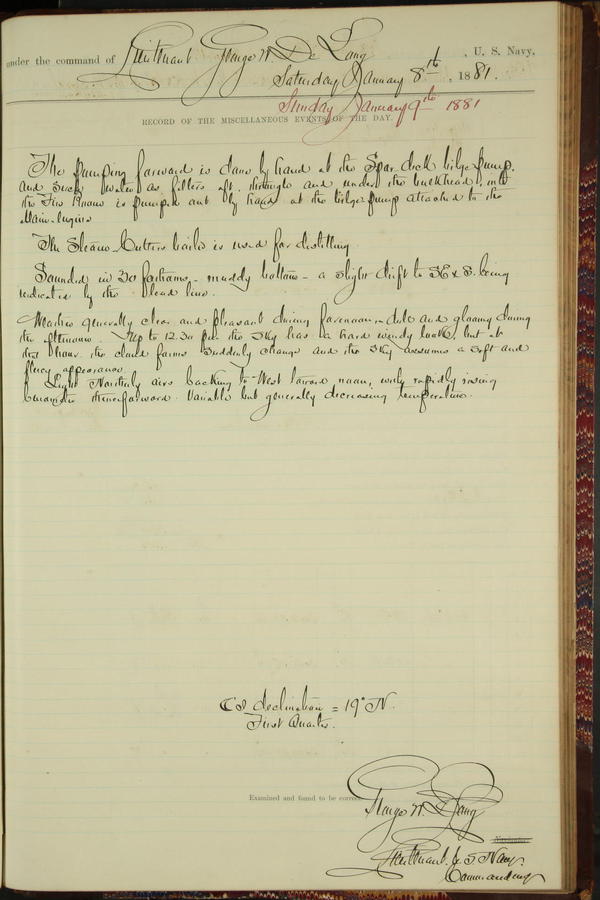 under the command of Lieutenant George W. De Long, U. S. Navy,
Saturday January 8th, 1881.
Sunday January 9th 1881
RECORD OF THE MISCELLANEOUS EVENTS OF THE DAY.
The pumping forward is done by hand at the Spar deck bilge pump,
and such water as filters aft, through and under the bulkhead, into
the Fire Room is pumped out by hand at the bilge pump attached to the
Main Engine
The Steam Cutters boiler is used for distilling.
Sounded in 30 fathoms - muddy bottom - a slight drift to SE x S. being
indicated by the lead line.
Weather generally clear and pleasant during forenoon - dull and gloomy during
the afternoon. Up to 12.30 PM the sky has a hard windy look, but at
that hour the cloud forms suddenly change and the sky assumes a soft and
fleecy appearance.
Light Northerly airs backing to West toward noon, with rapidly rising
barometer thenceforward. Variable but generally decreasing temperature.
declination = 19° N.
First Quarter.
Examined and found to be correct.
George W. De Long
Navigator.
Lieutenant. U. S Navy.
Commanding